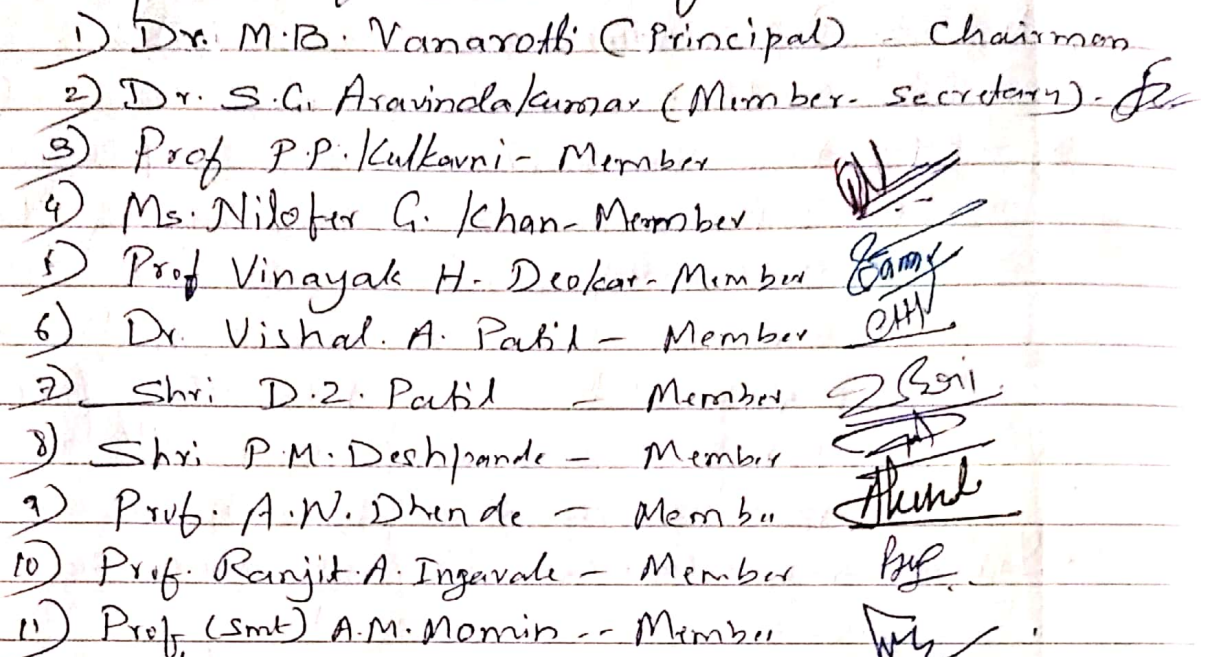 1) Dr. M.B. Vanarotti (Principal) - Chairman
2) Dr. S.G. Aravindakumar (Member-Secretary).
3) Prof P.P. Kulkarni - Member
4) Ms. Nilofer G. Khan - Member
5) Prof Vinayak H. Deokar - Member
6) Dr. Vishal. A. Patil - Member
7) Shri D.Z. Patil - Member
8) Shri P.M. Deshpande - Member
9) Prof. A.W. Dhende - Member
10) Prof. Ranjit. A. Ingavale - Member
11) Prof. (Smt) A.M. Momin -- Member